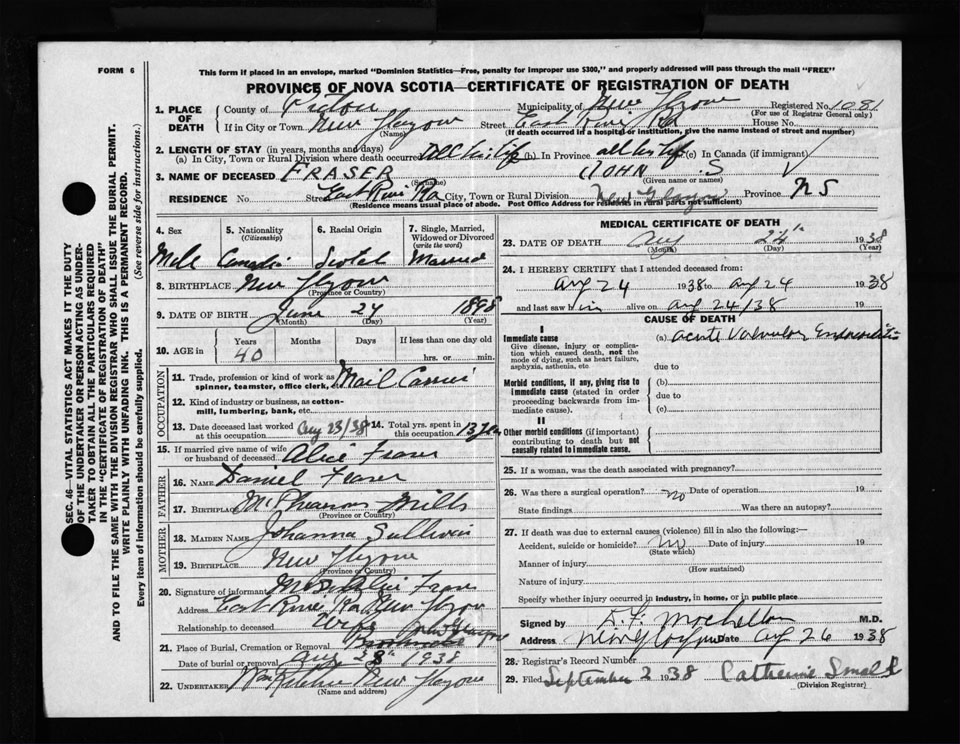 FORM 6
This form if placed in an envelope, marked "Dominion Statistics—Free, penalty for improper use $300," and properly addressed will pass through the mail "FREE"
PROVINCE OF NOVA SCOTIA—CERTIFICATE OF REGISTRATION OF DEATH
1. PLACE OF DEATH County of Pictou Municipality of New Glasgow Registered No. 1081
(For use of Registrar General only)
If in City or Town New Glasgow (Name) Street East River Rd House No.
(If death occurred in a hospital or institution, give the name instead of street and number)
2. LENGTH OF STAY (in years, months and days)
(a) In City, Town or Rural Division where death occurred All his life (b). In Province all his life (c) In Canada (if immigrant)
3. NAME OF DECEASED FRASER (Surname) JOHN S (Given name or names)
RESIDENCE No. Street East River Rd City, Town or Rural Division New Glasgow Province N S
(Residence means usual place of abode. Post Office Address for residents in rural parts not sufficient)
4. Sex
Male
5. Nationality (Citizenship)
Canadian
6. Racial Origin
Scotch
7. Single, Married, Widowed or Divorced (write the word)
Married
8. BIRTHPLACE New Glasgow
(Province or Country)
9. DATE OF BIRTH June 24 1898
(Month) (Day) (Year)
10. AGE in Years Months Days If less than one day old
40 hrs. or min.
OCCUPATION
11. Trade, profession or kind of work as spinner, teamster, office clerk, Mail Carrier
12. Kind of industry or business, as cotton-mill, lumbering, bank, etc.
13. Date deceased last worked at this occupation Aug 23/38 14. Total yrs. spent in this occupation 13 yrs
15. If married give name of wife or husband of deceased Alice Fraser
FATHER
16. NAME Daniel Fraser
17. BIRTHPLACE Mills
(Province or Country)
MOTHER
18. MAIDEN NAME Johanna Sullivan
19. BIRTHPLACE New Glasgow
(Province or Country)
20. Signature of informant Mrs Alice Fraser
Address East River Rd New Glasgow
Relationship to deceased Wife
21. Place of Burial, Cremation or Removal New Glasgow
Date of burial or removal Aug 28th 1938
22. UNDERTAKER Wm Ritchie New Glasgow
(Name and address)
MEDICAL CERTIFICATE OF DEATH
23. DATE OF DEATH Aug 24th 1938
(Month) (Day) (Year)
24. I HEREBY CERTIFY that I attended deceased from:
Aug 24 1938 to Aug 24 1938
and last saw him alive on Aug 24/38 19
CAUSE OF DEATH
I
Immediate cause (a) Acute Valvular Endocarditis
Give disease, injury or complication which caused death, not the mode of dying, such as heart failure, asphyxia, asthenia, etc
due to
Morbid conditions, if any, giving rise to immediate cause (stated in order proceeding backwards from immediate cause).
(b)
due to
(c)
II
Other morbid conditions (if important) contributing to death but not causally related to immediate cause.
25. If a woman, was the death associated with pregnancy?
26. Was there a surgical operation? no Date of operation 19
State findings Was there an autopsy?
27. If death was due to external causes (violence) fill in also the following:—
Accident, suicide or homicide? no Date of injury 19
(State which)
Manner of injury
(How sustained)
Nature of injury
Specify whether injury occurred in industry, in home, or in public place
Signed by M.D.
Address New Glasgow Date Aug 26 1938
28. Registrar's Record Number
29. Filed September 2 1938 Catherine Small
(Division Registrar)
SEC. 46—VITAL STATISTICS ACT MAKES IT THE DUTY
OF THE UNDERTAKER OR PERSON ACTING AS UNDERTAKER TO OBTAIN ALL THE PARTICULARS REQUIRED
IN THE "CERTIFICATE OF REGISTRATION OF DEATH"
AND TO FILE THE SAME WITH THE DIVISION REGISTRAR WHO SHALL ISSUE THE BURIAL PERMIT.
WRITE PLAINLY WITH UNFADING INK. THIS IS A PERMANENT RECORD.
Every item of Information should be carefully supplied. (See reverse side for instructions.)